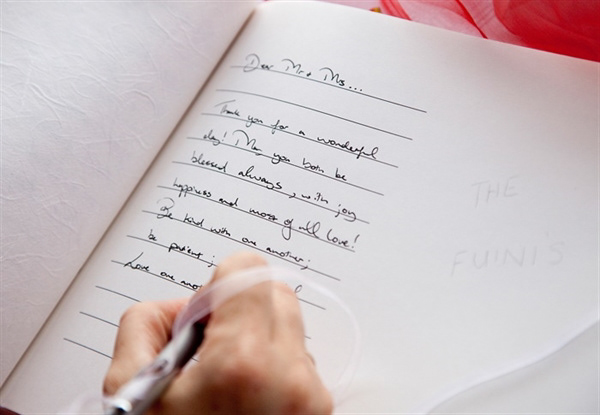 Dear Mr & Mrs...
Thank you for a wonderful
day! May you both be
blessed always, with joy
happiness and most of all love!
Be kind with one another;
be patient;
Love one
THE
FUINI'S